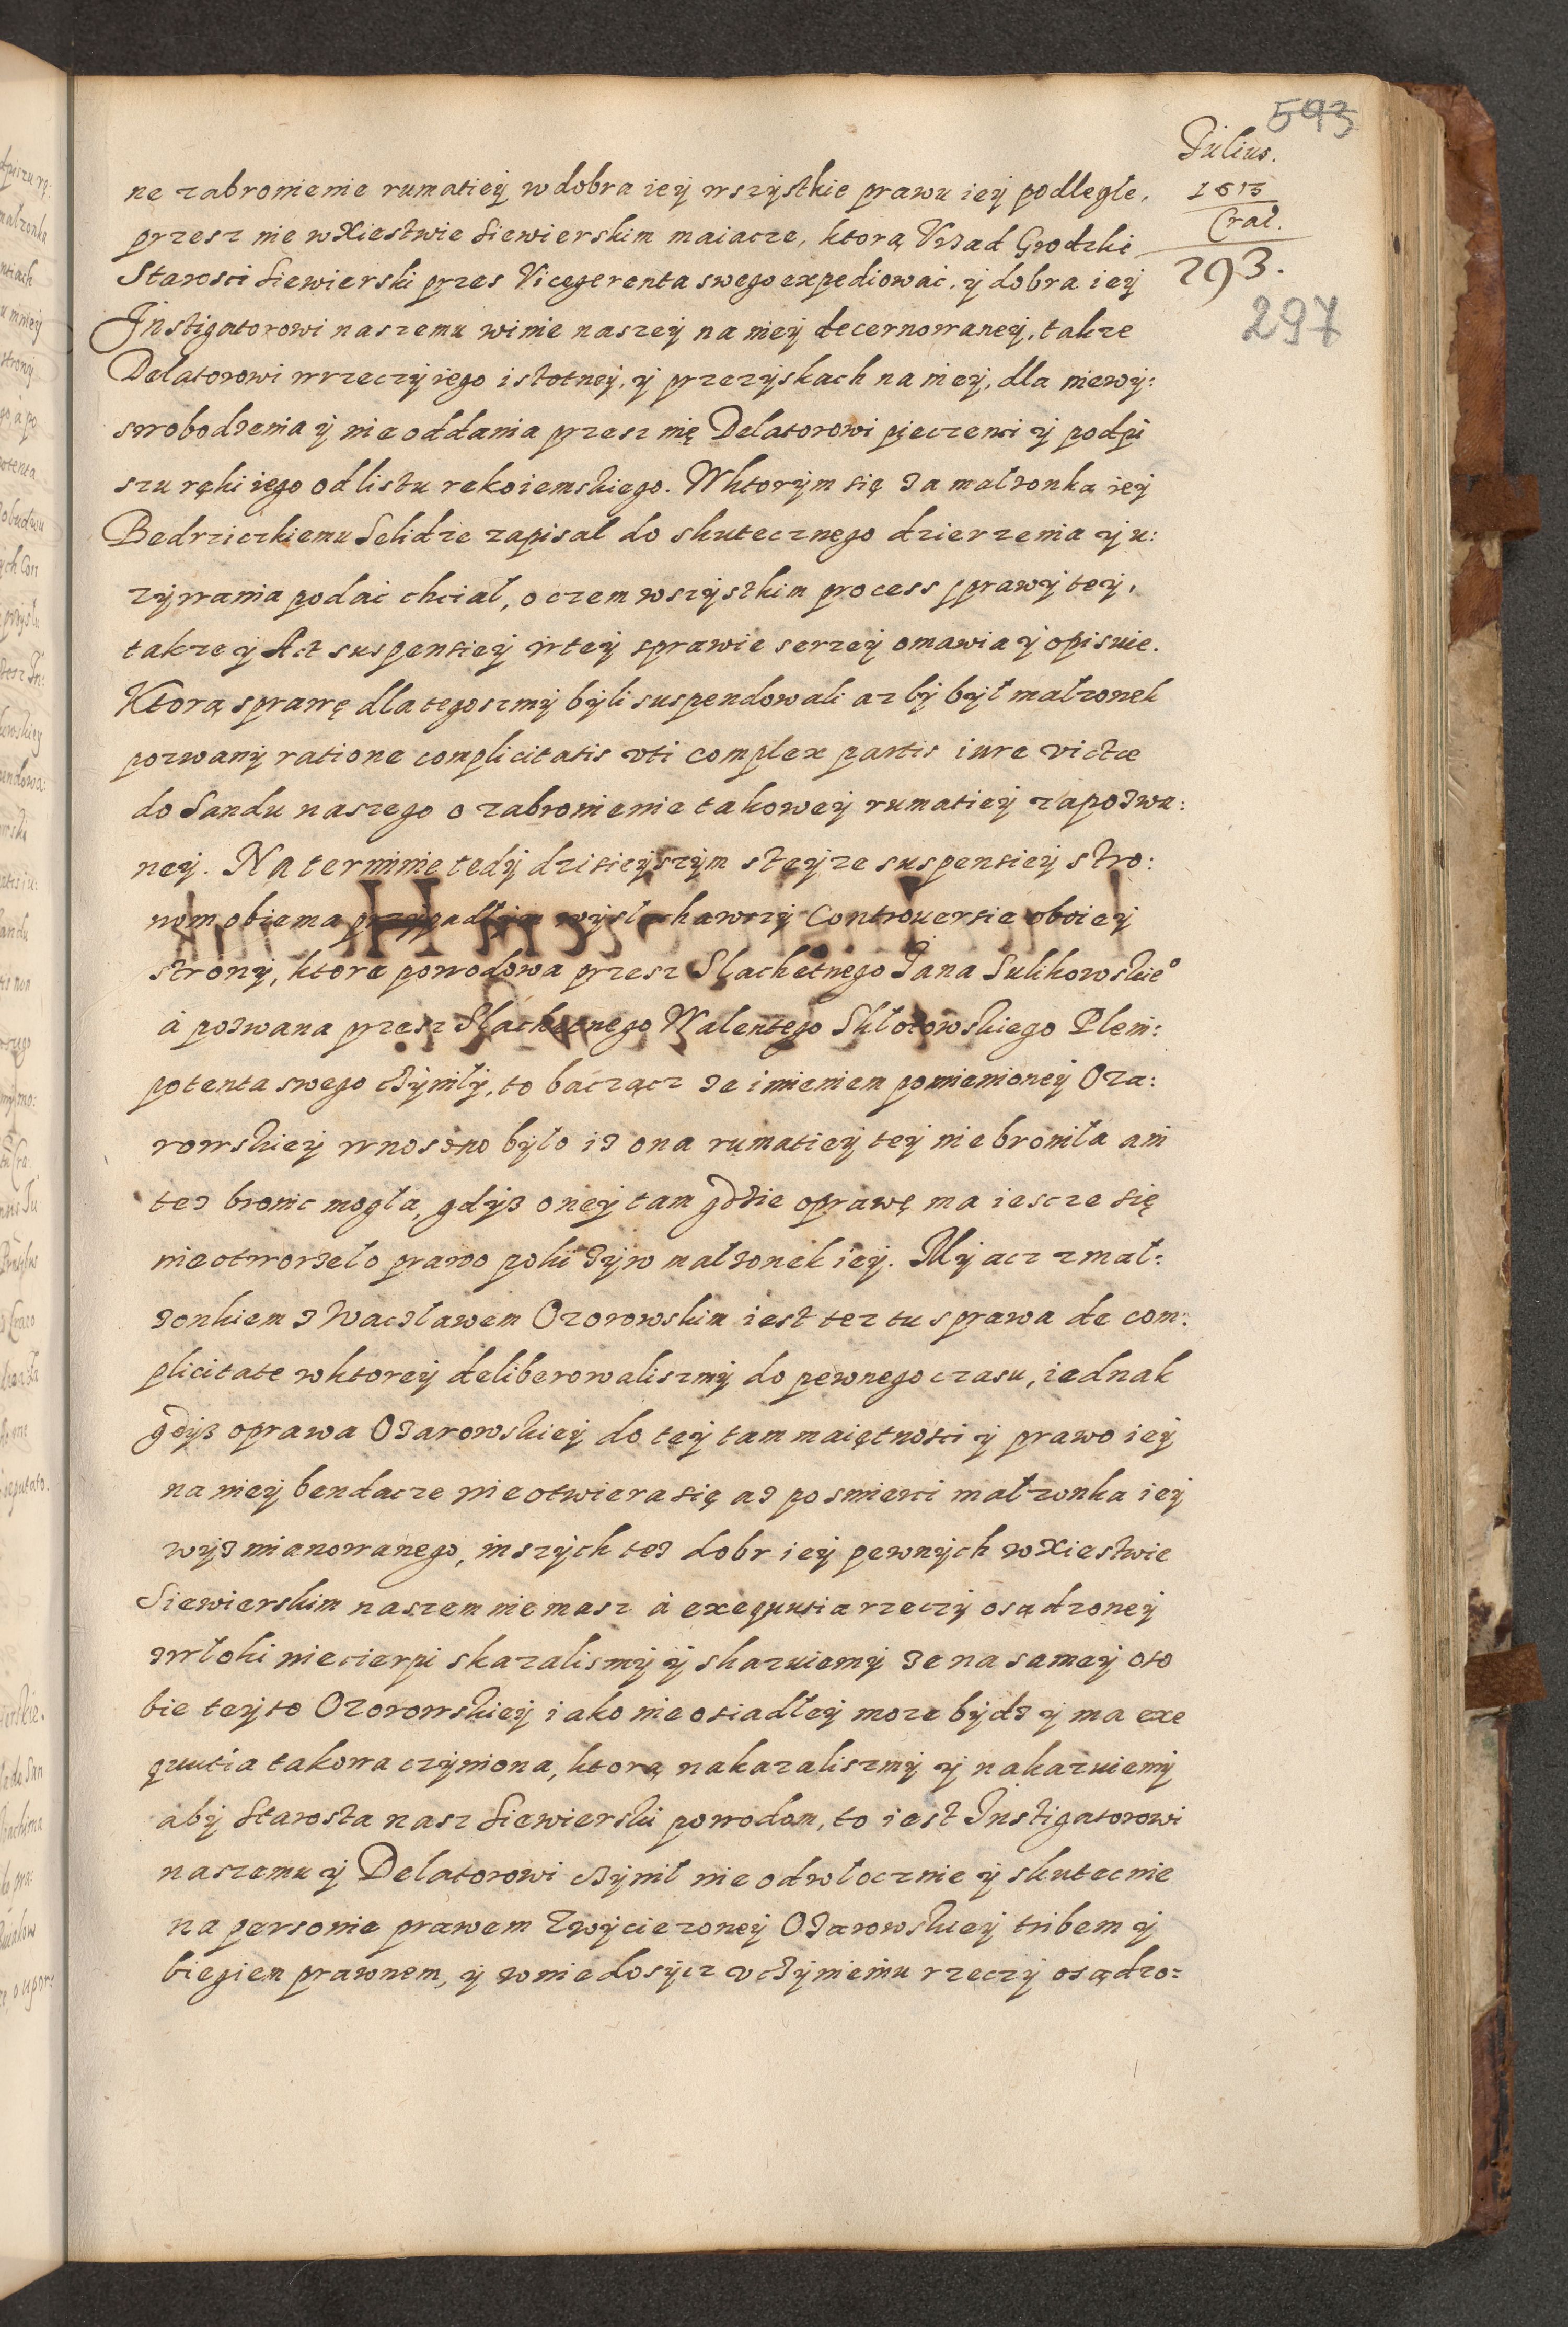 593
Julius.
1613
Crac.
293.
297
ne zabronienie rumatiey w dobra iey wszystkie prawu iey podlegle,
przesz nie w Xiestwie Siewierskim maiacze, ktorą Vrzad Grodzki
Starosci Siewierski przes Vicegerenta swego expediowac, y dobra iey
Jnstigatorowi naszemu winie naszey na niey decernowaney, takze
Delatorowi wrzeczy iego istotney, y przezyskach na niey, dla niewy:
swobodzenia y nie oddania przesz nię Delatorowi pieczenci y podpi
szu ręki iego od listu rekoiemskiego. W ktorym się za malzonka iey
Bedrziczkiemu Selidze zapisal do skutecznego dzierzenia y u:
zywania podac chcial, o czem wszystkim process sprawy tey,
takze y Act suspensiey w tey sprawie serzey omawia y opisuie.
Ktorą sprawę dla tegoszmy byli suspendowali az by byl malzonek
pozwany ratione complicitatis vti complex partis iure victæ
do Sandu naszego o zabronienie takowey rumatiey zapozwa:
ney. Na terminie tedy dzisieyszym z teyze suspensiey stro:
nom obiema przypadlym wysluchawszy Controuersie oboiey
strony, ktore powodowa przesz Slachetnego Jana Sulikowskie°
á pozwana przesz Slachetnego Walentego Sklotowskiego Pleni:
potenta swego czynily, to baczącz ze imieniem pomienioney Oza:
rowskiey wnoszono bylo iz ona rumatiey tey nie bronila ani
tez bronic mogla, gdysz oney tam gdzie oprawę ma iescze się
nie otworzelo prawo poki zyw malzonek iey. My acz z mal:
zonkiem z Waczlawem Ozorowskim iest tez tu sprawa de com:
plicitate w ktorey deliberowaliszmy do pewnego czasu, iednak
gdysz oprawa Ozarowskiey do tey tam maiętnosci y prawo iey
na niey bendacze nie otwiera się az po smierci malzonka iey
wyz mianowanego, inszych tez dobr iey pewnych w Xiestwie
Siewierskim naszem nie masz á exequutia rzeczy osądzoney
zwloki niecierpi skazalismy y skazuiemy ze na samey oso
bie teyto Ozorowskiey iako nie osiadley moze bydz y ma exe
quutia takowa czyniona, ktorą nakazaliszmy y nakazuiemy
aby Starosta nasz Siewierski powodom, to iest Jnstigatorowi
naszemu y Delatorowi czynil nie odwlocznie y skutecnie
na personie prawem Zwyciezoney Ozarowskiey tribem y
biegiem prawnem, y w niedosycz vczynieniu rzeczy osądzo=